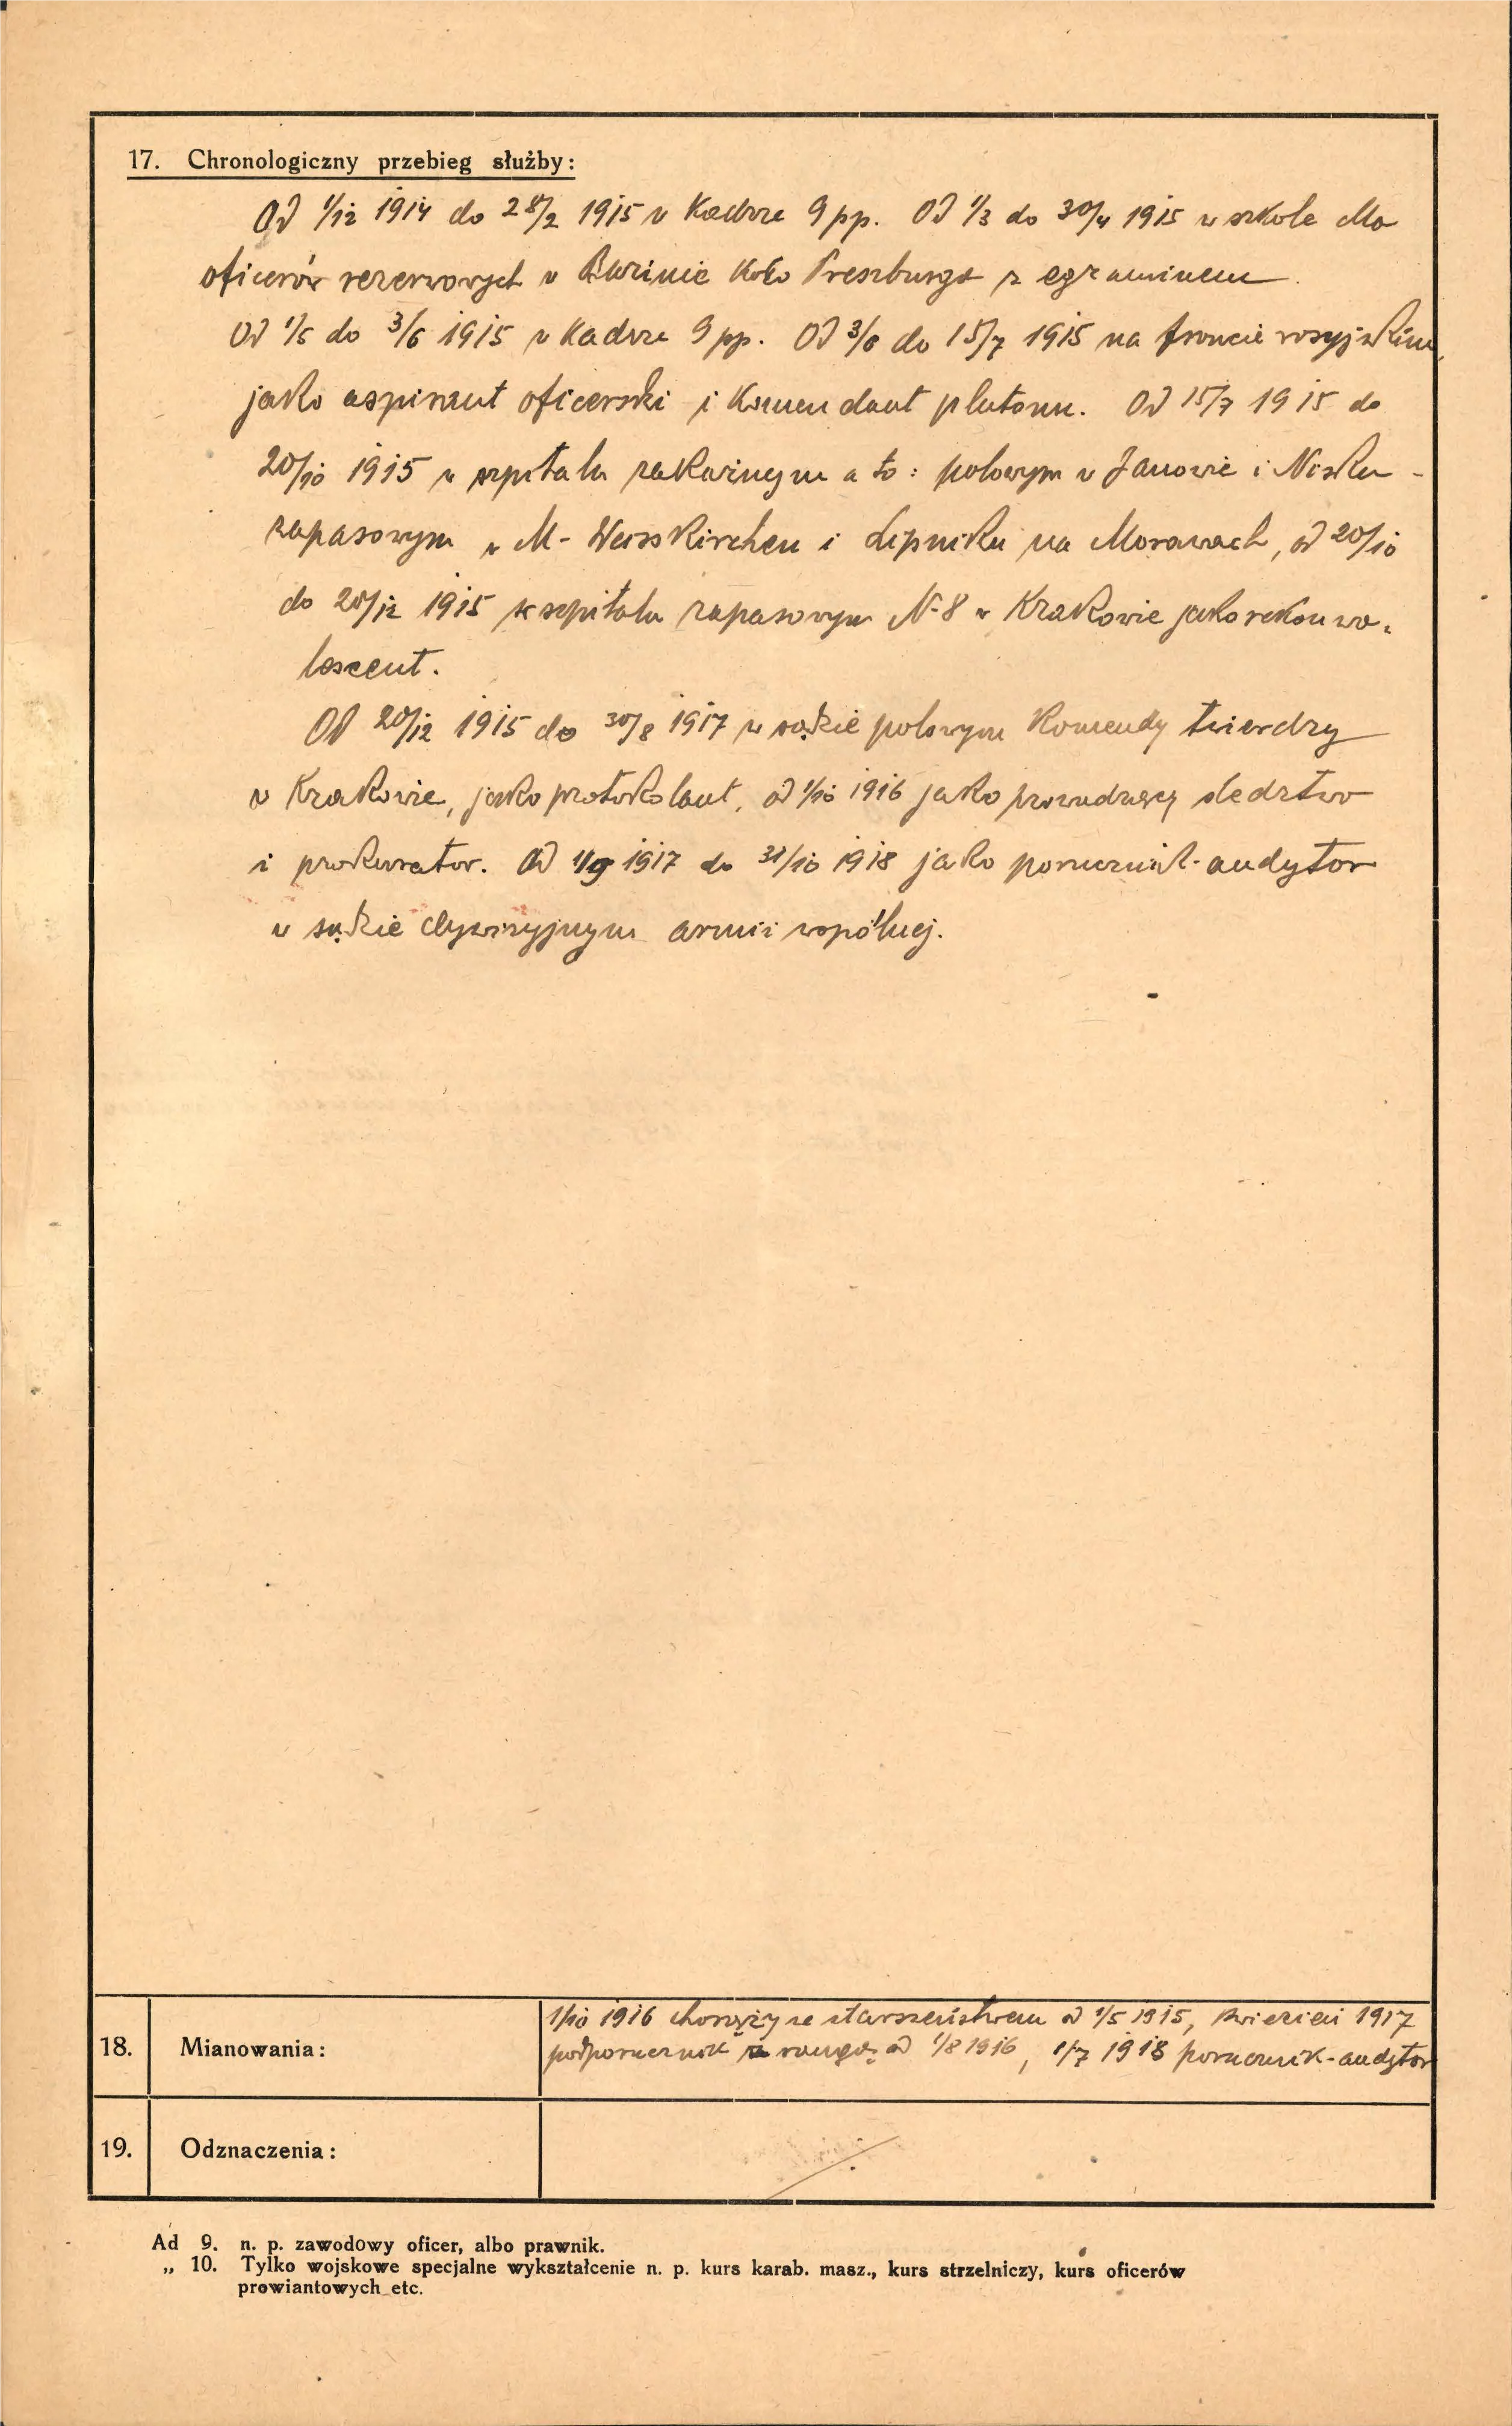 17. Chronologiczny przebieg służby:
Od 1/12 1914 do 28/2 1915 w Kadrze 9 pp. Od 1/3 do 30/4 1915 w szkole dla
oficerów rezerwowych w koło Preszburga z egzaminem.
Od 1/5 do 3/6 1915 w Kadrze 9 pp. Od 3/6 do 15/7 1915 na froncie rosyjskim
jako aspirant oficerski i Komendant plutonu. Od 15/7 1915 do
20/10 1915 w szpitalu zakaźnym a to: polowym w Janowie i Nisku -
zapasowym w M- Weisskirchen i Lipniku na Morawach, od 20/10
do 20/12 1915 w szpitalu zapasowym N-8 w Krakowie jako rekonwa-
lescent.
Od 20/12 1915 do 30/8 1917 w sądzie polowym Komendy twierdzy
w Krakowie, jako protokolant, od 1/10 1916 jako prowadzący śledztwo
i prokurator. Od 1/9 1917 do 31/10 1918 jako porucznik-audytor
w sądzie dywizyjnym armii wspólnej.
18. Mianowania: 1/10 1916 chorąży ze starszeństwem od 1/5 1915, kwiecień 1917
podporucznik z rangą od 1/8 1916, 1/7 1918 porucznik-audytor
19. Odznaczenia:
Ad 9. n. p. zawodowy oficer, albo prawnik.
„ 10. Tylko wojskowe specjalne wykształcenie n. p. kurs karab. masz., kurs strzelniczy, kurs oficerów
prowiantowych etc.